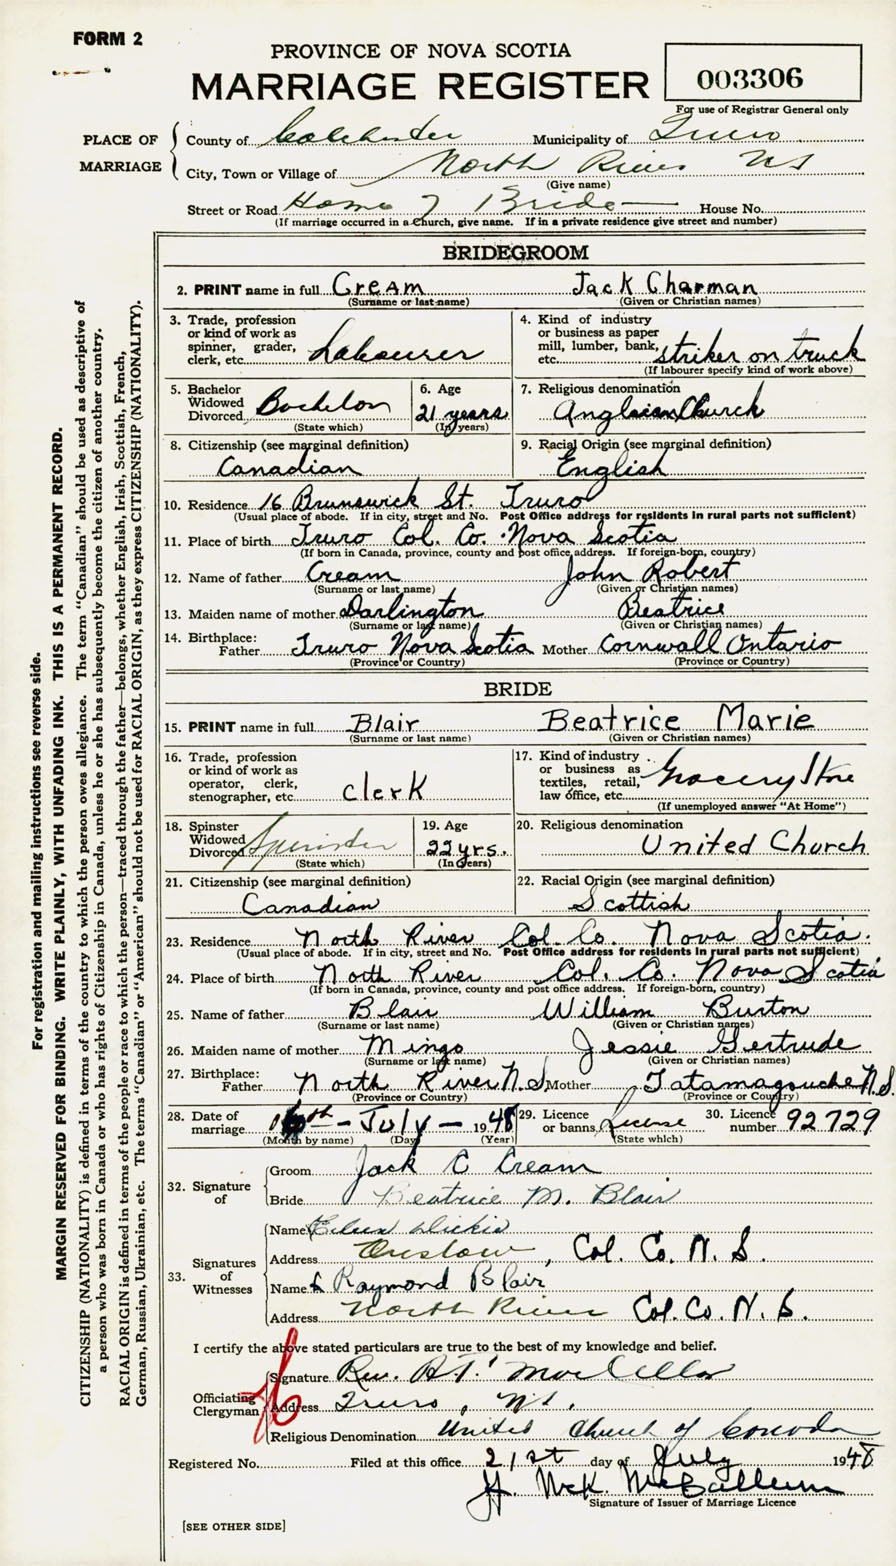 FORM 2
PROVINCE OF NOVA SCOTIA
MARRIAGE REGISTER
003306
For use of Registrar General only
PLACE OF MARRIAGE
County of Colchester Municipality of Truro
City, Town or Village of North River NS
(Give name)
Street or Road Home of Bride House No.
(If marriage occurred in a Church, give name. If in a private residence give street and number)
BRIDEGROOM
2. PRINT name in full Cream Jack Charman
(Surname or last name) (Given or Christian names)
3. Trade, profession or kind of work as spinner, grader, clerk, etc. Labourer
4. Kind of industry or business as paper mill, lumber, bank, etc. striker on truck
(If labourer specify kind of work above)
5. Bachelor Widowed Divorced Bachelor
(State which)
6. Age 21 years
(In years)
7. Religious denomination Anglican Church
8. Citizenship (see marginal definition) Canadian
9. Racial Origin (see marginal definition) English
10. Residence 16 Brunswick St. Truro
(Usual place of abode. If in city, street and No. Post Office address for residents in rural parts not sufficient)
11. Place of birth Truro Col. Co. Nova Scotia
(If born in Canada, province, county and post office address. If foreign-born, country)
12. Name of father Cream John Robert
(Surname or last name) (Given or Christian names)
13. Maiden name of mother Darlington Beatrice
(Surname or last name) (Given or Christian names)
14. Birthplace: Father Truro Nova Scotia Mother Cornwall Ontario
(Province or Country) (Province or Country)
BRIDE
15. PRINT name in full Blair Beatrice Marie
(Surname or last name) (Given or Christian names)
16. Trade, profession or kind of work as operator, clerk, stenographer, etc. clerk
17. Kind of industry or business as textiles, retail, law office, etc. Grocery Store
(If unemployed answer "At Home")
18. Spinster Widowed Divorced Spinster
(State which)
19. Age 22 yrs.
(In years)
20. Religious denomination United Church
21. Citizenship (see marginal definition) Canadian
22. Racial Origin (see marginal definition) Scottish
23. Residence North River Col. Co. Nova Scotia.
(Usual place of abode. If in city, street and No. Post Office address for residents in rural parts not sufficient)
24. Place of birth North River Col. Co. Nova Scotia
(If born in Canada, province, county and post office address. If foreign-born, country)
25. Name of father Blair William Burton
(Surname or last name) (Given or Christian names)
26. Maiden name of mother Mingo Jessie Gertrude
(Surname or last name) (Given or Christian names)
27. Birthplace: Father North River N.S Mother Tatamagouche N.S.
(Province or Country) (Province or Country)
28. Date of marriage July 1948
(Month by name) (Day) (Year)
29. Licence or banns License
(State which)
30. Licence number 92729
32. Signature of
Groom Jack C Cream
Bride Beatrice M. Blair
33. Signatures of Witnesses
Name Dickie
Address Onslow, Col. Co. N. S.
Name Raymond Blair
Address North River Col. Co. N. S.
I certify the above stated particulars are true to the best of my knowledge and belief.
Officiating Clergyman
Signature Rev.
Address Truro, NS.
Religious Denomination United Church of Canada
Registered No. Filed at this office 21st day of July 1948
H. McK. McCallum
Signature of Issuer of Marriage Licence
[SEE OTHER SIDE]
For registration and mailing instructions see reverse side.
MARGIN RESERVED FOR BINDING. WRITE PLAINLY, WITH UNFADING INK. THIS IS A PERMANENT RECORD.
CITIZENSHIP (NATIONALITY) is defined in terms of the country to which the person owes allegiance. The term "Canadian" should be used as descriptive of
a person who was born in Canada or who has rights of Citizenship in Canada, unless he or she has subsequently become the citizen of another country.
RACIAL ORIGIN is defined in terms of the people or race to which the person—traced through the father—belongs, whether English, Irish, Scottish, French,
German, Russian, Ukrainian, etc. The terms "Canadian" or "American" should not be used for RACIAL ORIGIN, as they express CITIZENSHIP (NATIONALITY).